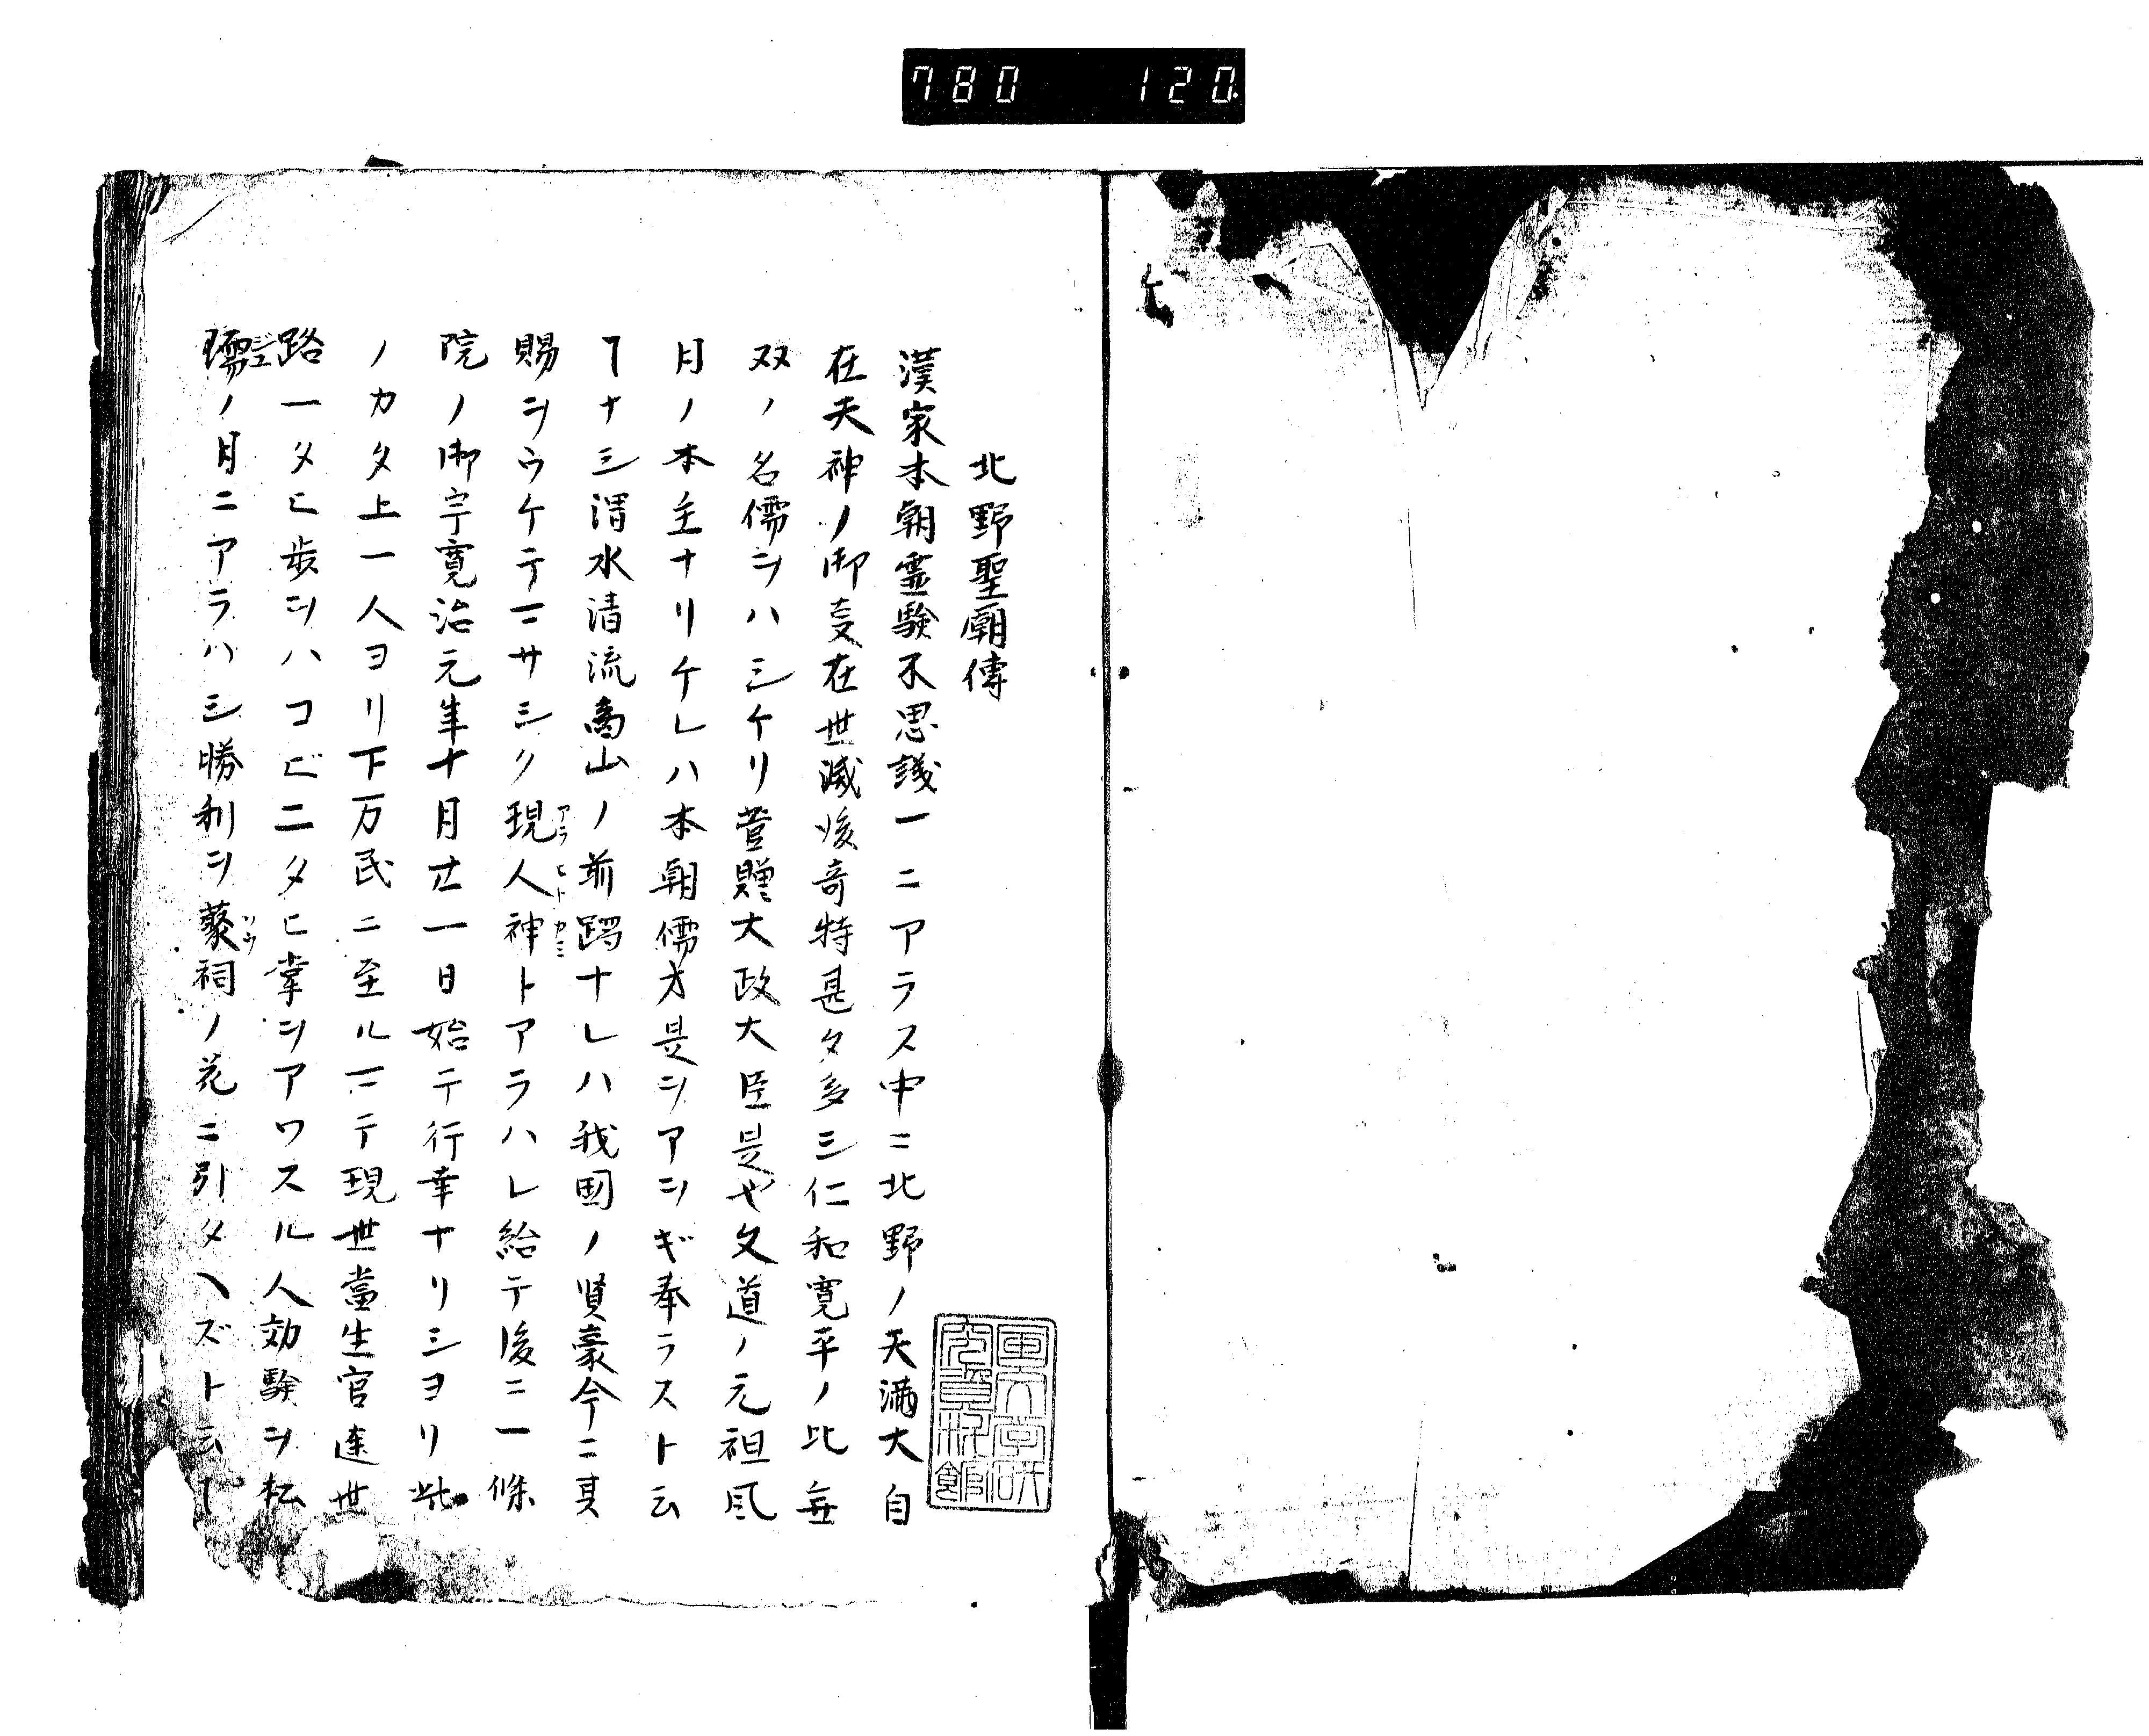 780 120
北野聖廟傳
漢家本朝霊験不思議一ニアラス中ニ北野ノ天満大自
在天神ノ御事在世滅後奇特甚タ多シ仁和寛平ノ比無
双ノ名儒ヲハシケリ菅贈大政大臣是也文道ノ元祖風
月ノ本主ナリケレハ本朝儒才是ヲアヲギ奉ラスト云
ヿナシ渭水清流商山ノ前蹤ナレハ我国ノ賢豪今ニ其
賜ヲウケテマサシク現人神トアラハレ給テ後ニ一條
アラヒトカミ
院ノ御宇寛治元年十月廿一日始テ行幸ナリシヨリ此
ノカタ上一人ヨリ下万民ニ至ルマテ現世當生官途世
路一タヒ歩ヲハコビ二タヒ掌ヲアワスル人効験ヲ松
ノ月ニアラハシ勝利ヲ藂祠ノ花ニ引タヘズト云ヿ
ソウ